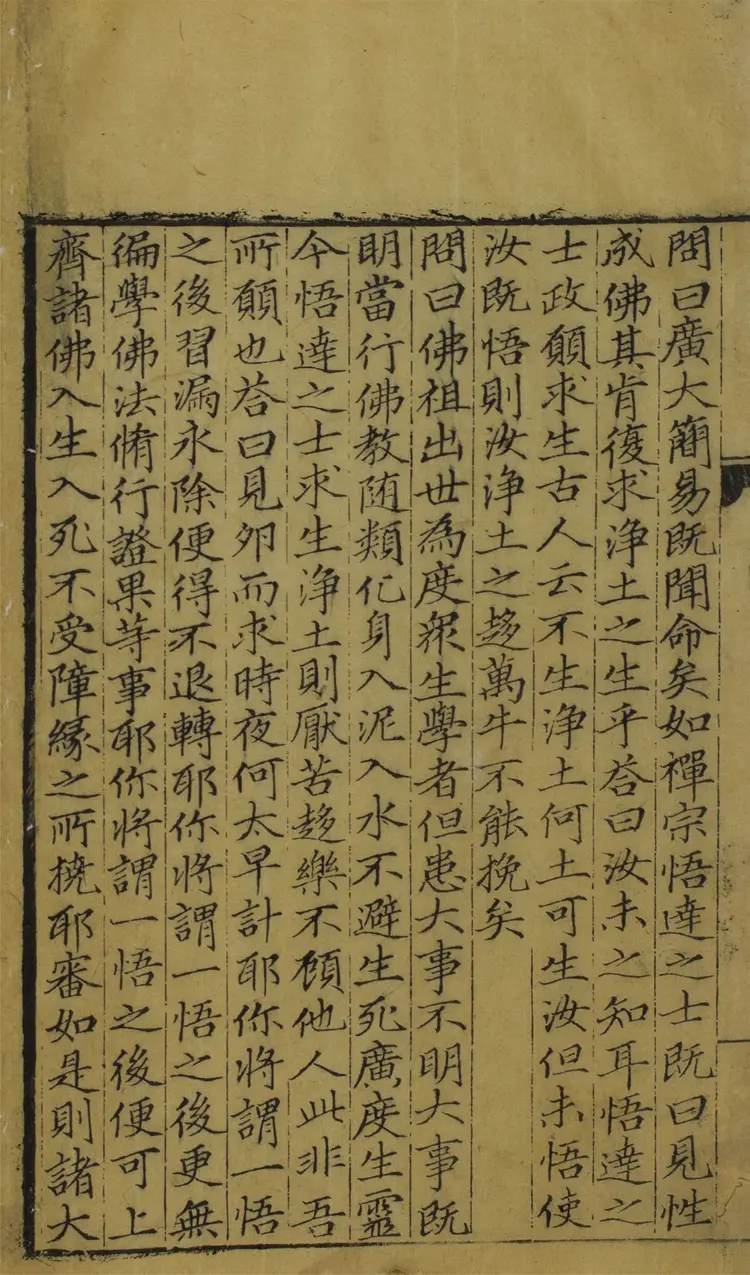 問曰廣大簡易既聞命矣如禪宗悟達之士既曰見性
成佛其肯復求淨土之生乎荅曰汝未之知耳悟達之
士政願求生古人云不生淨土何土可生汝但未悟使
汝既悟則汝淨土之趍萬牛不能挽矣
問曰佛祖出世為度衆生學者但患大事不明大事既
明當行佛教随類化身入泥入水不避生死廣度生靈
今悟達之士求生淨土則厭苦趍樂不顧他人此非吾
所願也荅曰見夘而求時夜何太早計耶你將謂一悟
之後習漏永除便得不退轉耶你將謂一悟之後更無
徧學佛法脩行證果等事耶你將謂一悟之後便可上
齊諸佛入生入死不受障緣之所撓耶審如是則諸大